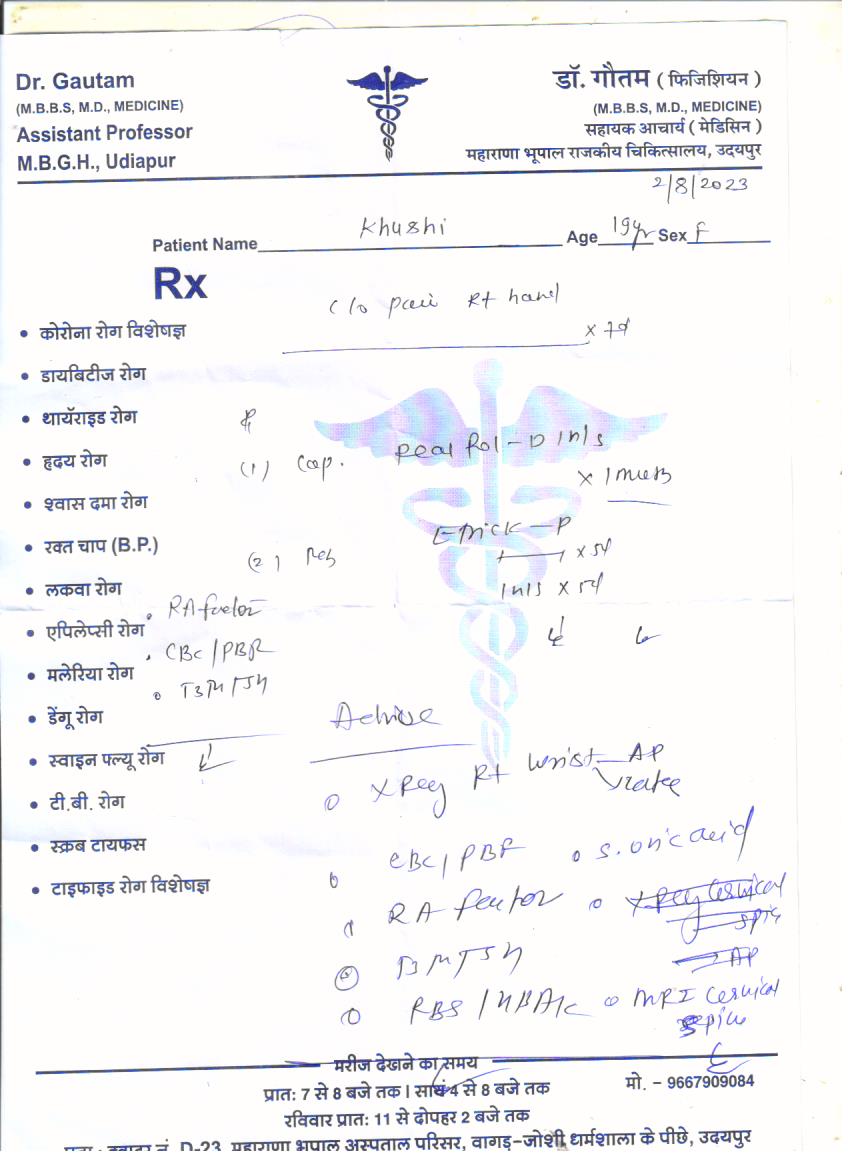 Dr. Gautam
(M.B.B.S, M.D., MEDICINE)
Assistant Professor
M.B.G.H., Udiapur
डॉ. गौतम ( फिजिशियन )
(M.B.B.S, M.D., MEDICINE)
सहायक आचार्य ( मेडिसिन )
महाराणा भूपाल राजकीय चिकित्सालय, उदयपुर
2/8/2023
Patient Name Khushi Age 19yr Sex F
Rx
C/o pain Rt hand
x 7d
• कोरोना रोग विशेषज्ञ
• डायबिटीज रोग
• थायॅराइड रोग
• हृदय रोग
• श्वास दमा रोग
• रक्त चाप (B.P.)
• लकवा रोग
• एपिलेप्सी रोग
• मलेरिया रोग
• डेंगू रोग
• स्वाइन फ्ल्यू रोग
• टी.बी. रोग
• स्क्रब टायफस
• टाइफाइड रोग विशेषज्ञ
(1) Cap.
(2)
x 5d
x 5d
RA factor
CBC / PBF
Advise
X Ray Rt Wrist AP
CBC / PBF
S. uric acid
RA factor
X Ray Cervical
AP
RBS / HBA1c
MRI Cervical
Spine
मरीज देखने का समय
प्रात: 7 से 8 बजे तक । सायं 4 से 8 बजे तक
मो. - 9667909084
रविवार प्रात: 11 से दोपहर 2 बजे तक
D-23, महाराणा भूपाल अस्पताल परिसर, वागड़-जोशी धर्मशाला के पीछे, उदयपुर